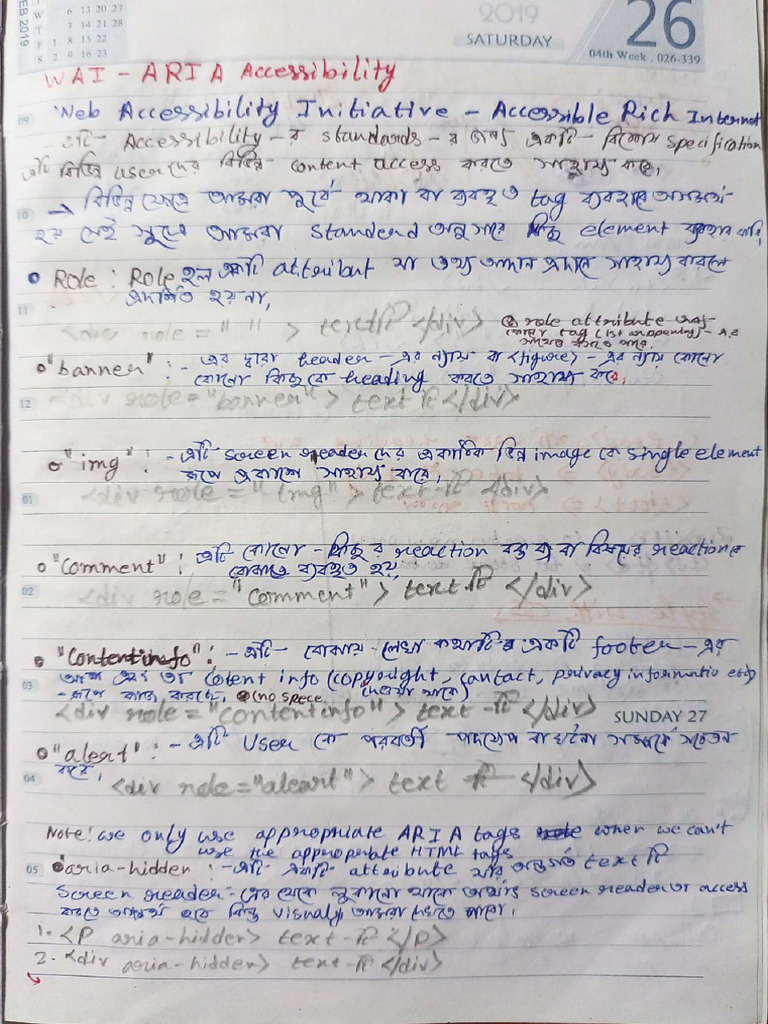 FEB 2019
W 6 13 20 27
T 7 14 21 28
F 1 8 15 22
S 2 9 16 23
2019
SATURDAY
26
04th Week . 026-339
WAI - ARIA Accessibility
09 Web Accessibility Initiative - Accessible Rich Internet
- এটি Accessibility - র standards - র জন্য একটি - বিশেষ specification
এটি বিভিন্ন user দের বিভিন্ন content access করতে সাহায্য করে,
10 → বিভিন্ন ক্ষেত্রে আমরা পূর্বে থাকা বা ব্যবহৃত tag ব্যবহারে অসমর্থ
হয় সেই সূত্রে আমরা standerd অনুসারে কিছু element ব্যবহার করি
Role : Role হল একটি attribut যা তথ্য আদান প্রদানে সাহায্য করলে
প্রদর্শিত হয় না,
11
<div role = " " > text টি </div>
role attribute
tag (list annoning) - এর
সাথেও
"banner" : - এর দ্বারা header - এর ন্যায় বা <figure> - এর ন্যায় কোনো
কোনো কিছু কে heading করতে সাহায্য করে,
12 <div role = "banner" > text টি </div>
"img" : - এটি screen reader দের একাধিক ভিন্ন image কে single element
রূপে প্রকাশে সাহায্য করে,
01 <div role = "img" > text - টি </div>
"comment" : এটি কোনো - কিছু র reaction বক্তব্য বা বিষয়ের reaction
বোঝাতে ব্যবহৃত হয়,
02 <div role = "comment" > text টি </div>
"contentinfo" : - এটি - বোঝায় লেখা কথাটি একটি footer - এর
03 অংশ এবং তা cotent info (copyright, contact, privacy informatio etc)
- রূপে কাজ করছে, (no spece)
<div role = "contentinfo" > text - টি </div>
SUNDAY 27
"alert" : - এটি User কে পরবর্তী পদক্ষেপ বা ঘটনা সম্পর্কে সচেতন
করে,
04 <div role = "aleart" > text টি </div>
Note: we only use appropriate ARIA tags when we can't
use the approperate HTML tags
05 aria-hidden : - এটি একটি attribute যার অন্তর্গত text টি
Screen reader - এর থেকে লুকানো থাকে অর্থাৎ screen reader তা access
করতে অসমর্থ হবে কিন্তু visualy আমরা দেখতে পাবো।
1. <p aria-hidden> text - টি </p>
2. <div aria-hidden> text - টি </div>